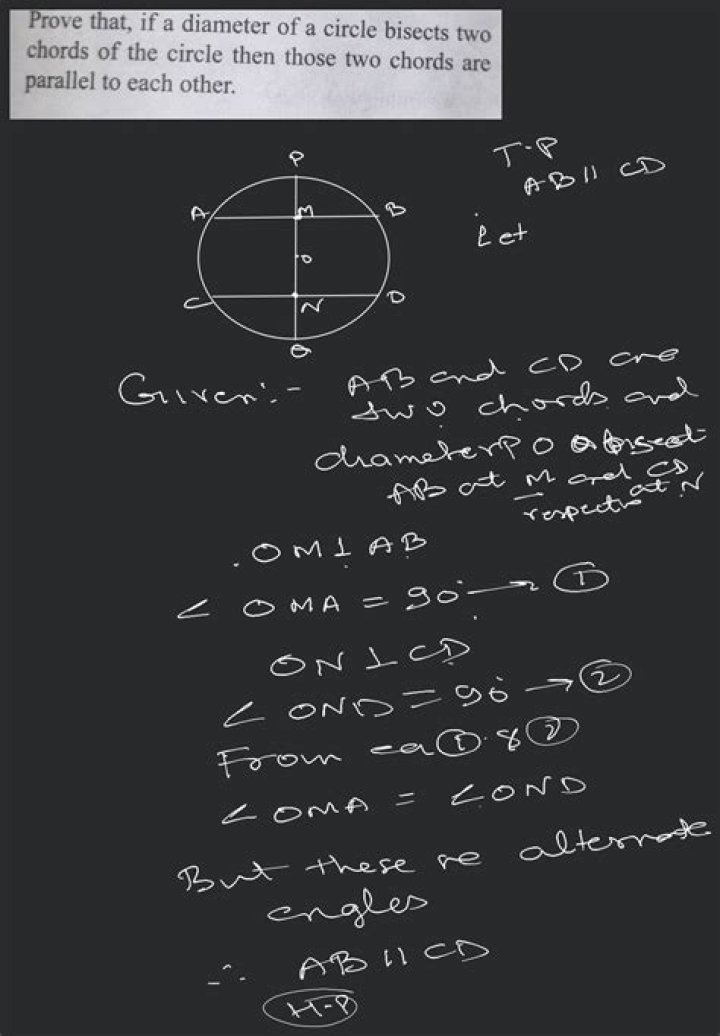 Prove that, if a diameter of a circle bisects two
chords of the circle then those two chords are
parallel to each other.
P
T-P
AB || CD
A
M
B
Let
O
C
N
D
Q
Given:- AB and CD are
two chords and
diameter PO Q bisect
AB at M and CD
at N
OM ⊥ AB
∠ OMA = 90° → ①
ON ⊥ CD
∠ OND = 90° → ②
From eq ① & ②
∠ OMA = ∠ OND
But these re alternate
angles
∴ AB || CD
H-P